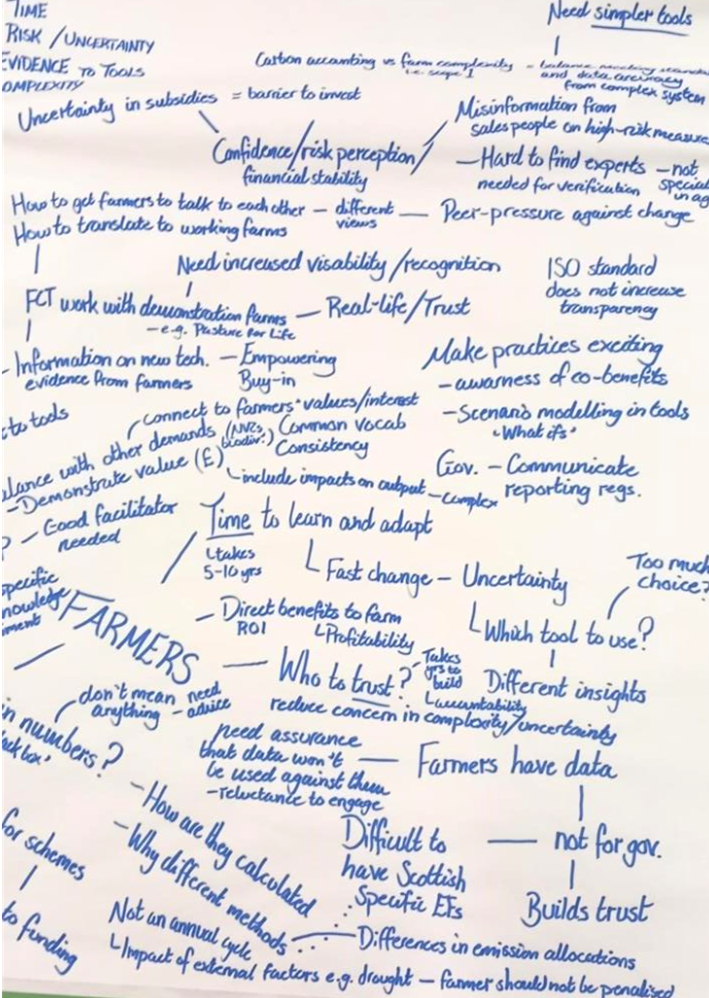 TIME
RISK / UNCERTAINTY
EVIDENCE TO TOOLS
OMPLEXITY
Need simpler tools
Carbon accounting vs farm complexity
i.e. scope 1
= balance meeting standards
and data accuracy
from complex system
Uncertainty in subsidies = barrier to invest
Confidence/risk perception/
financial stability
Misinformation from
sales people on high-risk measure
- Hard to find experts - not
needed for verification
special
in ag
How to get farmers to talk to each other - different
views
Peer-pressure against change
How to translate to working farms
Need increased visability/recognition
ISO standard
does not increase
transparency
FCT work with demonstration farms - Real-life/Trust
- e.g. Pasture for Life
- Information on new tech. - Empowering
evidence from farmers
Buy-in
Make practices exciting
- awarness of co-benefits
- Scenario modelling in tools
'What ifs'
cto tools
connect to farmers' values/interest
lance with other demands (NVRs
biodiv.)
Common vocab
Consistency
- Demonstrate value (£)
include impacts on output - complex
Gov. - Communicate
reporting regs.
? - Good facilitator
needed
Time to learn and adapt
takes
5-10 yrs
Fast change - Uncertainty
Too much
choice?
Which tool to use?
Different insights
specific
nowledge
ment
FARMERS
- Direct benefits to farm
ROI
Profitability
Who to trust?
Takes
yrs to
build
accountability
reduce concern in complexity/uncertainty
don't mean
anything
need
- advice
n numbers?
ack box'
need assurance
that data won't
be used against them
- reluctance to engage
Farmers have data
not for gov.
Builds trust
- How are they calculated
- Why different methods
Difficult to
have Scottish
Specific EFs
for schemes
to funding
Not an annual cycle
Differences in emission allocations
Impact of external factors e.g. drought - farmer should not be penalised